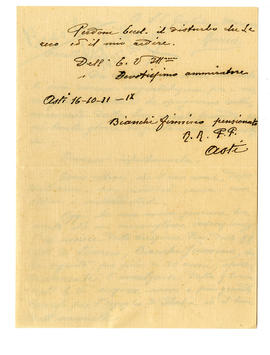 Perdoni Eccel. il disturbo che Le
reco ed il mio ardire.
Dell' E. V. Ill.ma
Devotissimo ammiratore
Asti 16-10-31 - IX
Bianchi Firmino pensionato
R. R. P. P.
Asti